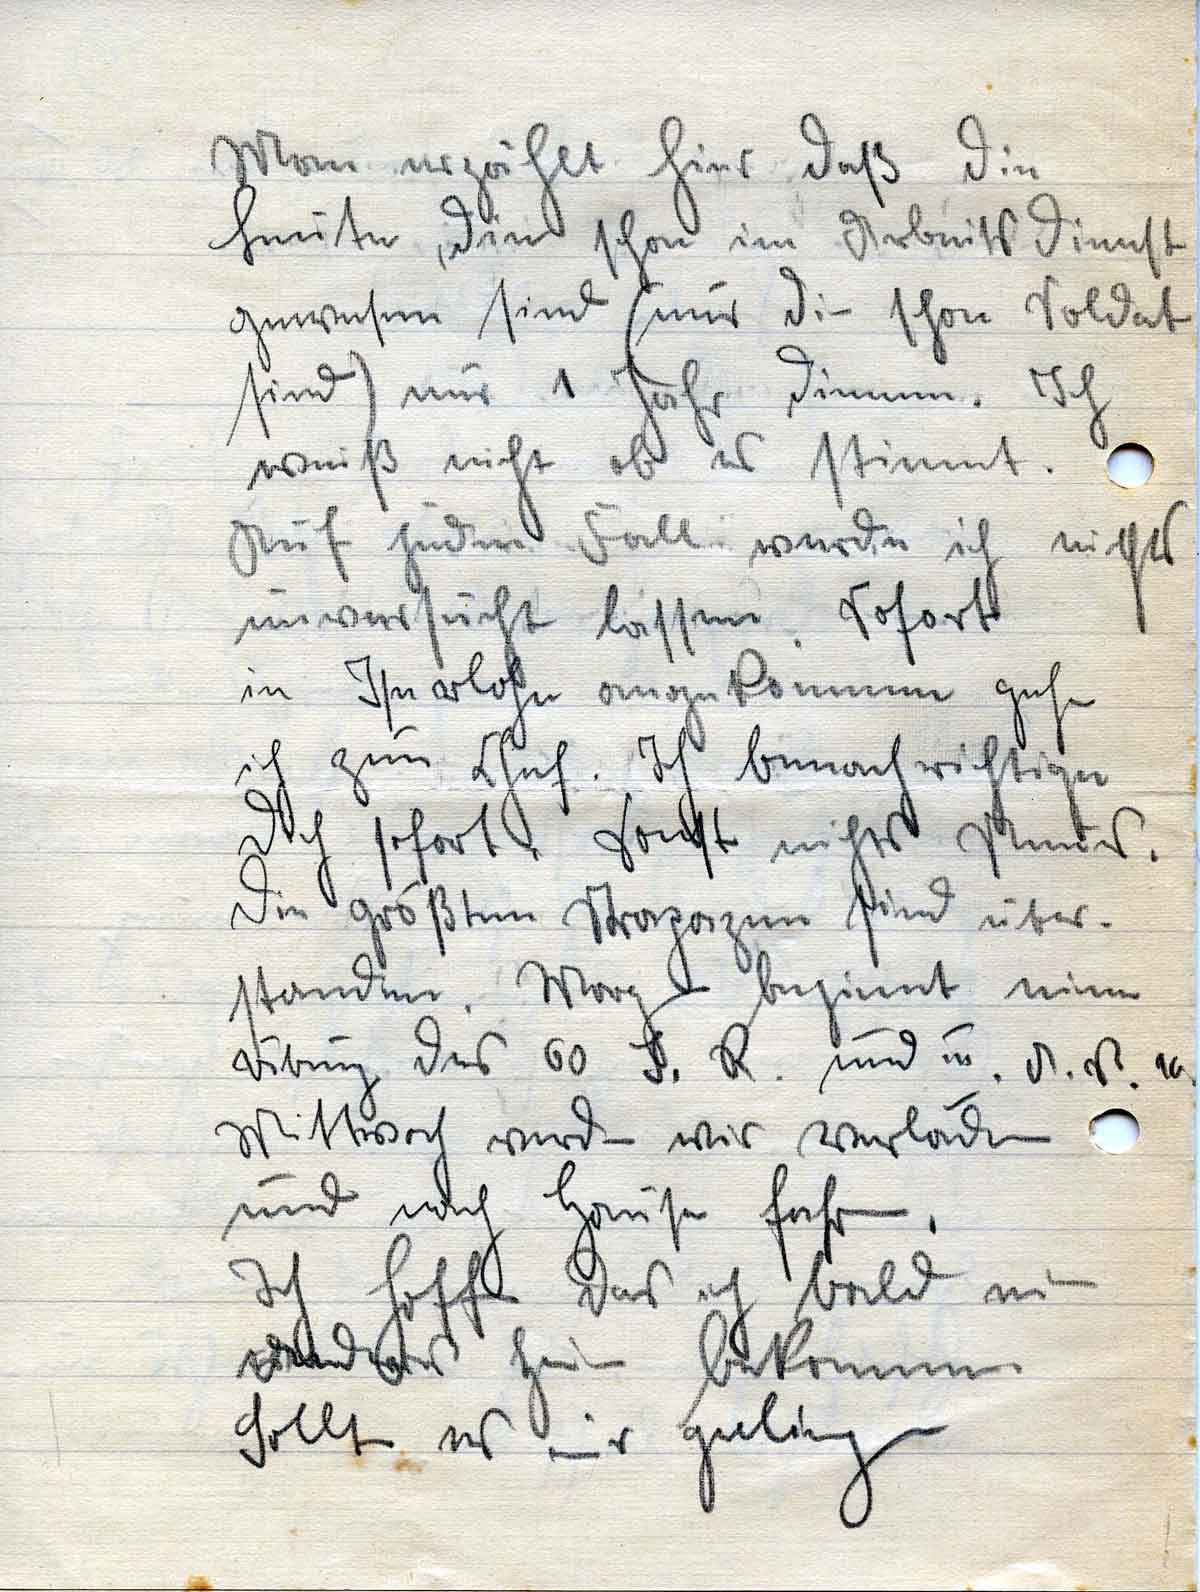 Man erzählt hier daß die
Leute, die schon im Arbeitsdienst
gewesen sind (nur die schon Soldat
sind) nur 1 Jahr dienen. Ich
weiß nicht ob es stimmt.
Auf jeden Fall werde ich nichts
unversucht lassen. Sofort
in Iserlohn angekommen gehe
ich zum Chef. Ich benachrichtige
Dich sofort. Sonst nichts Neues.
Die größten Strapazen sind über-
standen. Morgen beginnt eine
Übung des 60 I. R. und III. A. R. 16.
Mittwoch werden wir verladen
und nach Hause fahren.
Ich hoffe das ich bald ein
anderes Heim bekommen
Sollte es mir gelingen